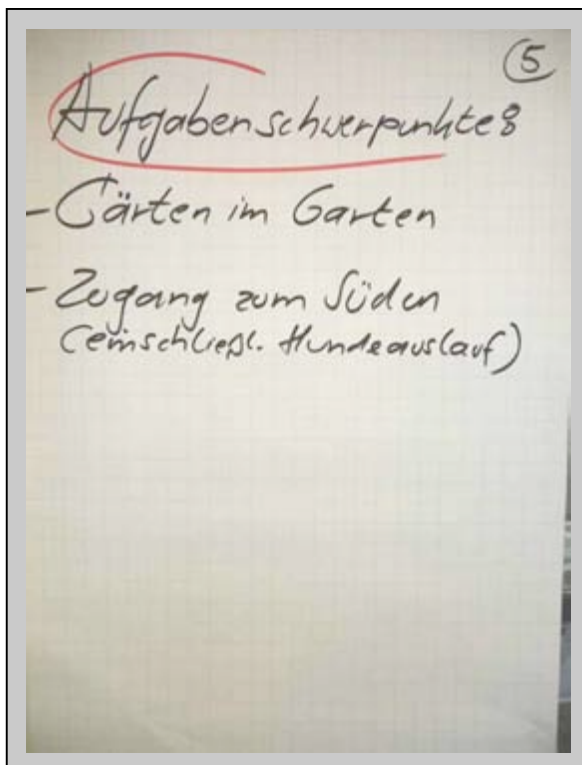 5
Aufgabenschwerpunkte:
- Gärten im Garten
- Zugang zum Süden
(einschließl. Hundeauslauf)